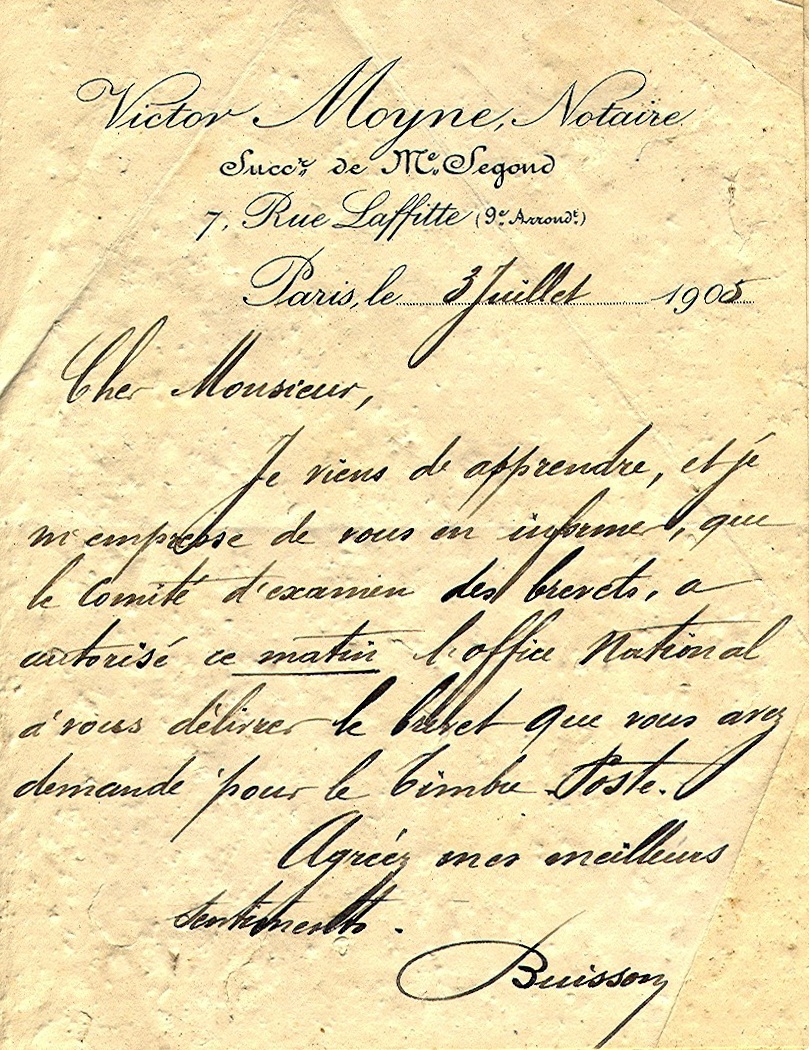 Victor Moyne, Notaire
Succr. de Me. Segond
7, Rue Laffitte (9e. Arrondt.)
Paris, le 3 Juillet 1905
Cher Monsieur,
Je viens de apprendre, et je
m'empresse de vous en informer, que
le Comité d'examen des brevets, a
autorisé ce matin l'office National
à vous délivrer le brevet que vous avez
demandé pour le Timbre-Poste.
Agréez mes meilleurs
sentiments.
Buisson